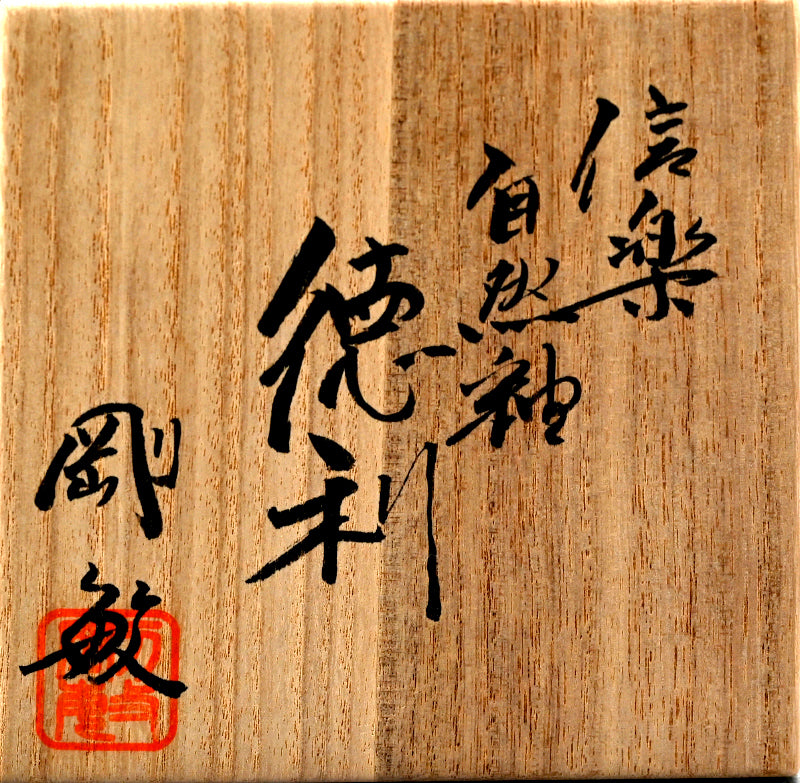 信楽
自然釉
徳利
剛敏